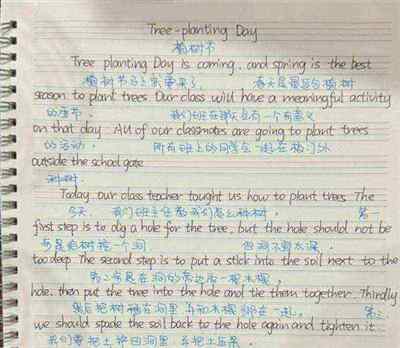 Tree-planting Day
植树节
Tree planting Day is coming, and spring is the best
植树节马上就要来了, 春天是最适合植树
season to plant trees. Our class will have a meaningful activity
的季节. 我们班在那天会有一个有意义
on that day. All of our classmates are going to plant trees
的活动. 所有班上的同学在一起在校门外
outside the school gate
种树.
Today, our class teacher tought us how to plant trees. The
今天, 我们班主任教我们怎么种树. 第一
first step is to dig a hole for the tree, but the hole should not be
步是给树挖一个洞 但洞不要太深.
too deep. The second step is to put a stick into the soil next to the
第二步是在洞的旁边插一根木棍,
hole, then put the tree into the hole and tie them together. Thirdly
然后把树放在洞里 再和木棍绑在一起. 第三
we should spade the soil back to the hole again and tighten it.
我们要把土铲回洞里, 再把土压紧.